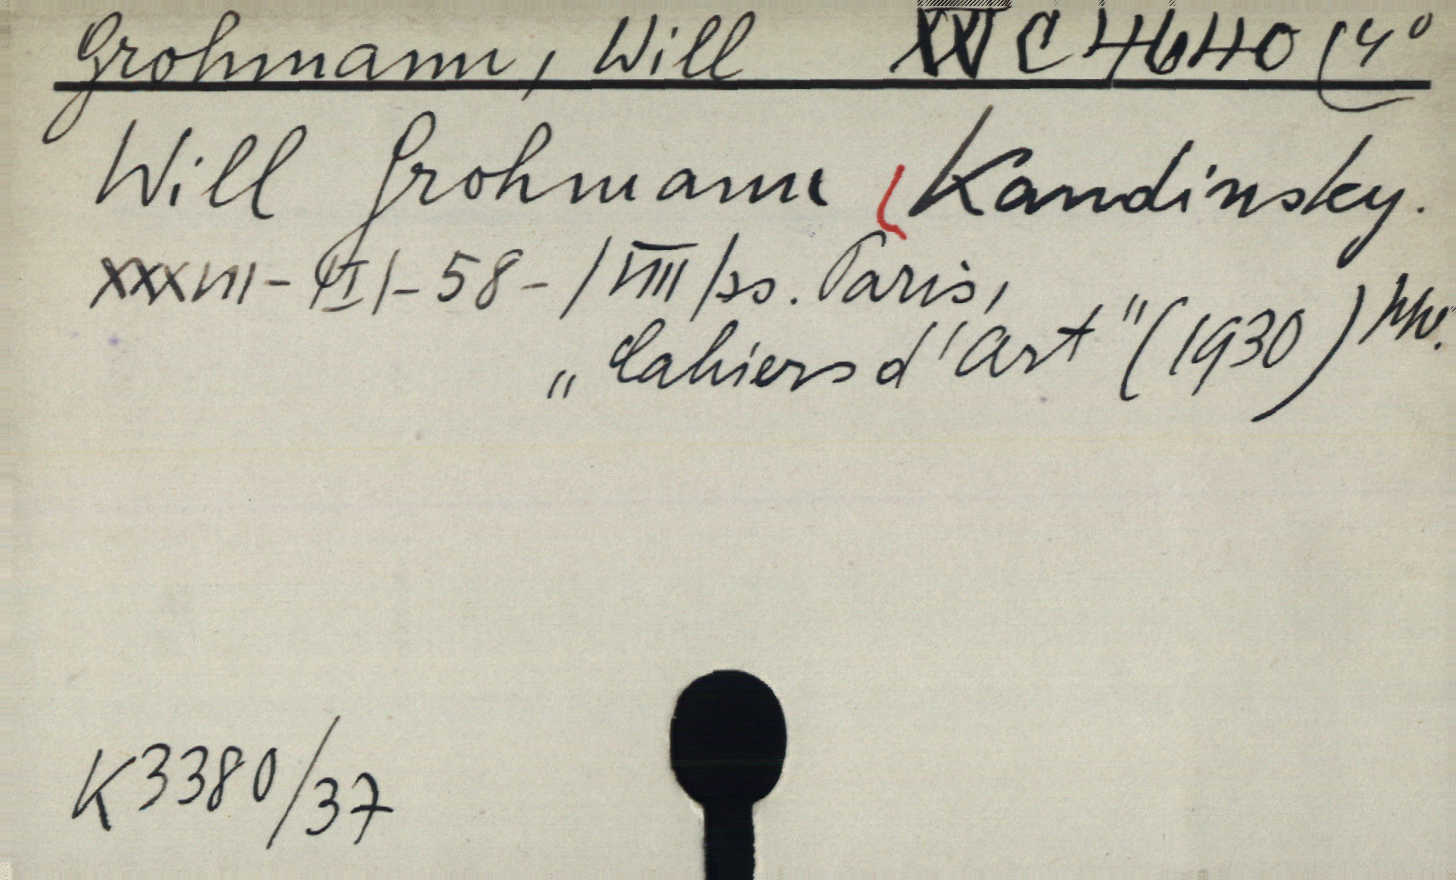 Grohmann, Will XV C 4640 (4°
Will Grohmann Kandinsky.
XXXVIII - [VI] - 58 - /VIII/ ss. Paris,
„Cahiers d'Art" (1930)
K3380/37